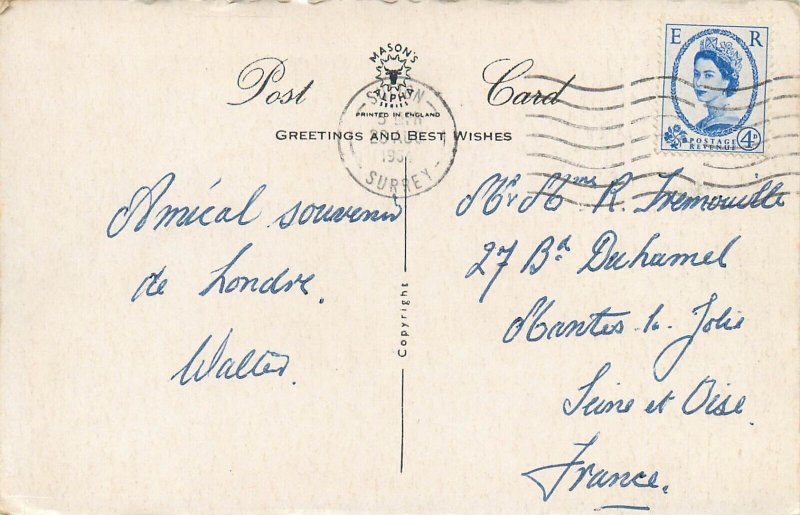 Post Card
MASON'S
ALPHA
SERIES
PRINTED IN ENGLAND
GREETINGS AND BEST WISHES
E R
POSTAGE
REVENUE
4D
SURREY
Amical souvenir
de Londre.
Walter.
Copyright
Mr Mme R. Tremouille
27 Bd Duhamel
Mantes la Jolie
Seine et Oise
France.